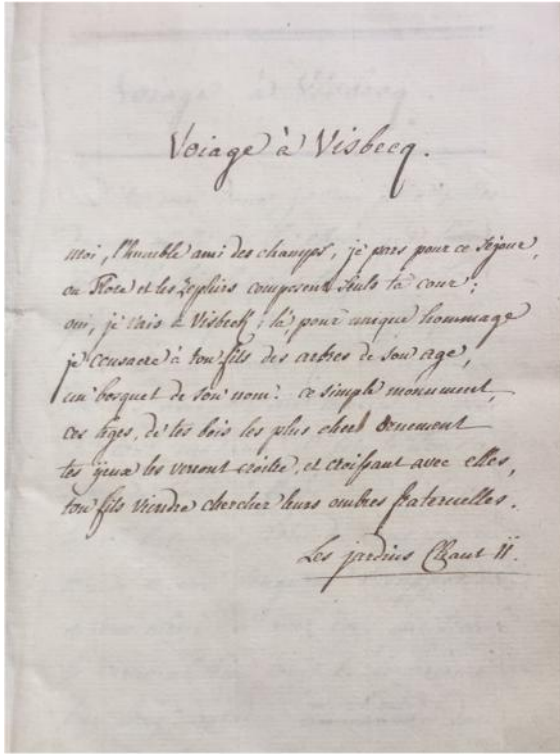 Voiage à Visbecq.
moi, l'humble ami des champs, je pars pour ce séjour,
ou Flore et les Zephirs composent seuls ta cour;
oui, je vais à Visbeck; là, pour unique hommage
je consacre à ton fils des arbres de son age,
un bosquet de son nom: ce simple monument,
ces tiges, de tes bois les plus cher ornement
tes yeux les verront croitre, et croissant avec elles,
ton fils viendra chercher leurs ombres fraternelles.
Les jardins Chant II.